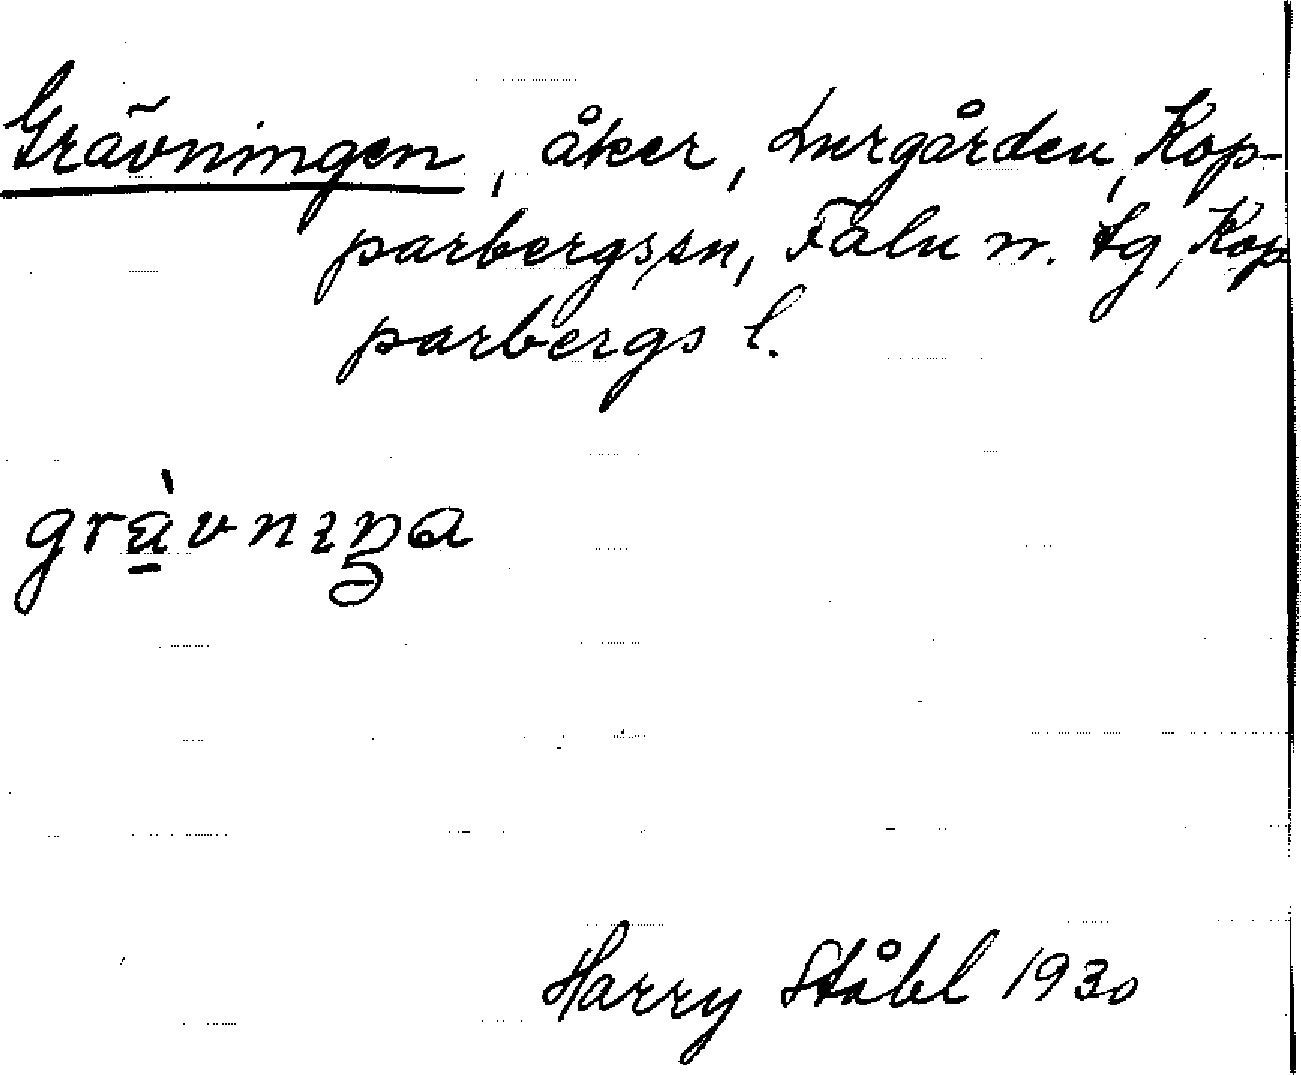 Grävningen, åker, Lurgården, Kop-
parbergs sn, Falu n. tg, Kop
parbergs l.
gràvnıŋa
Harry Ståhl 1930